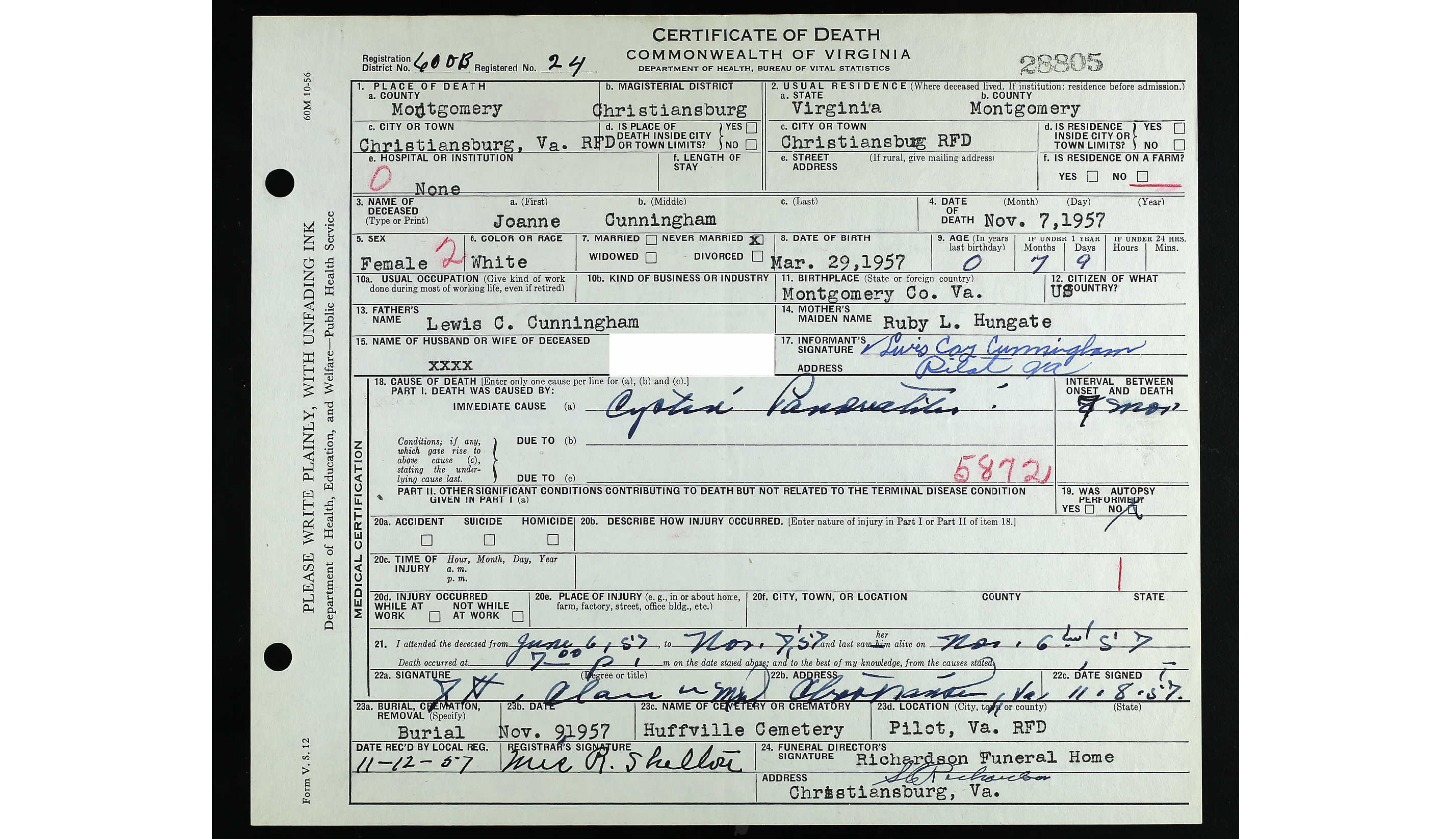 CERTIFICATE OF DEATH
COMMONWEALTH OF VIRGINIA
DEPARTMENT OF HEALTH, BUREAU OF VITAL STATISTICS
28805
Registration District No. 600B Registered No. 24
60M 10-56
PLEASE WRITE PLAINLY, WITH UNFADING INK
Department of Health, Education, and Welfare—Public Health Service
Form V. S. 12
1. PLACE OF DEATH
a. COUNTY
Montgomery
b. MAGISTERIAL DISTRICT
Christiansburg
2. USUAL RESIDENCE (Where deceased lived. If institution: residence before admission.)
a. STATE
Virginia
b. COUNTY
Montgomery
c. CITY OR TOWN
Christiansburg, Va. RFD
d. IS PLACE OF DEATH INSIDE CITY OR TOWN LIMITS? YES NO
c. CITY OR TOWN
Christiansburg RFD
d. IS RESIDENCE INSIDE CITY OR TOWN LIMITS? YES NO
e. HOSPITAL OR INSTITUTION
0 None
f. LENGTH OF STAY
e. STREET ADDRESS (If rural, give mailing address)
f. IS RESIDENCE ON A FARM?
YES NO
3. NAME OF DECEASED (Type or Print)
a. (First) b. (Middle) c. (Last)
Joanne Cunningham
4. DATE OF DEATH (Month) (Day) (Year)
Nov. 7,1957
5. SEX
Female 2
6. COLOR OR RACE
White
7. MARRIED NEVER MARRIED X
WIDOWED DIVORCED
8. DATE OF BIRTH
Mar. 29,1957
9. AGE (In years last birthday)
0
IF UNDER 1 YEAR
Months Days
7 9
IF UNDER 24 HRS.
Hours Mins.
10a. USUAL OCCUPATION (Give kind of work done during most of working life, even if retired)
10b. KIND OF BUSINESS OR INDUSTRY
11. BIRTHPLACE (State or foreign country)
Montgomery Co. Va.
12. CITIZEN OF WHAT COUNTRY?
US
13. FATHER'S NAME
Lewis C. Cunningham
14. MOTHER'S MAIDEN NAME
Ruby L. Hungate
15. NAME OF HUSBAND OR WIFE OF DECEASED
XXXX
17. INFORMANT'S SIGNATURE
Lewis Coy Cunningham
ADDRESS
Pilot Va
MEDICAL CERTIFICATION
18. CAUSE OF DEATH [Enter only one cause per line for (a), (b) and (c).]
PART I. DEATH WAS CAUSED BY:
IMMEDIATE CAUSE (a) Cystic Pancreatitis
INTERVAL BETWEEN ONSET AND DEATH
7 mos
Conditions, if any, which gave rise to above cause (c), stating the underlying cause last.
DUE TO (b)
DUE TO (c)
5872
PART II. OTHER SIGNIFICANT CONDITIONS CONTRIBUTING TO DEATH BUT NOT RELATED TO THE TERMINAL DISEASE CONDITION GIVEN IN PART I (a)
19. WAS AUTOPSY PERFORMED?
YES NO
20a. ACCIDENT SUICIDE HOMICIDE
20b. DESCRIBE HOW INJURY OCCURRED. [Enter nature of injury in Part I or Part II of item 18.]
20c. TIME OF INJURY Hour, Month, Day, Year
a. m.
p. m.
20d. INJURY OCCURRED
WHILE AT WORK NOT WHILE AT WORK
20e. PLACE OF INJURY (e. g., in or about home, farm, factory, street, office bldg., etc.)
20f. CITY, TOWN, OR LOCATION COUNTY STATE
21. I attended the deceased from June 6, 57, to Nov. 7, 57 and last saw her him alive on Nov. 6 57
Death occurred at 7 00 P. m on the date stated above; and to the best of my knowledge, from the causes stated
22a. SIGNATURE (Degree or title)
22b. ADDRESS
Va
22c. DATE SIGNED
11-8-57
23a. BURIAL, CREMATION, REMOVAL (Specify)
Burial
23b. DATE
Nov. 9,1957
23c. NAME OF CEMETERY OR CREMATORY
Huffville Cemetery
23d. LOCATION (City, town, or county) (State)
Pilot, Va. RFD
DATE REC'D BY LOCAL REG.
11-12-57
REGISTRAR'S SIGNATURE
Mrs R. Shelton
24. FUNERAL DIRECTOR'S SIGNATURE
Richardson Funeral Home
ADDRESS
Christiansburg, Va.